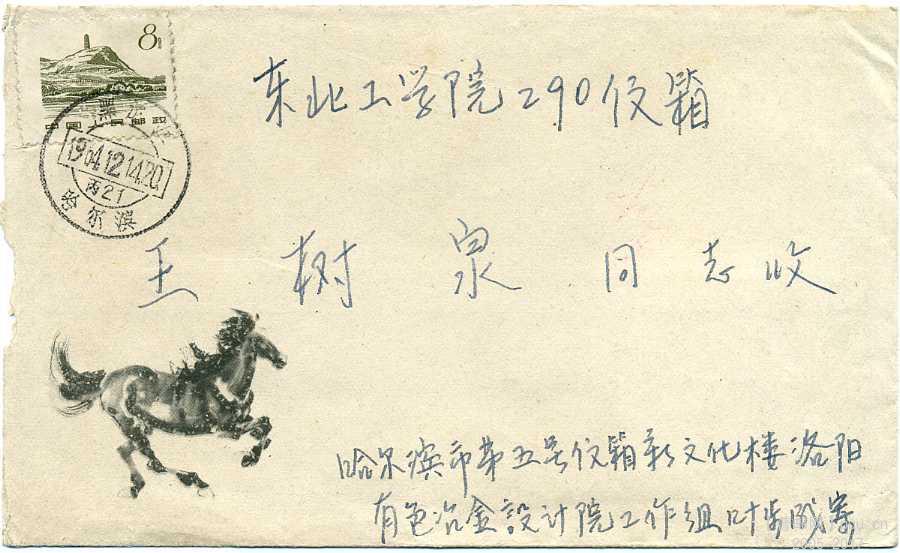 8分
中国人民邮政
黑龙江
1964.12.14.20
丙21
哈尔滨
东北工学院290伩箱
王树泉同志收
哈尔滨市第五号伩箱新文化楼洛阳
有色冶金設计院工作组叶成寄